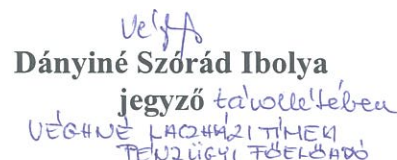 Dányiné Szórád Ibolya
jegyző távollétében
VÉGHNÉ LACHHÁZI TÍMEA
PÉNZÜGYI FŐELŐADÓ